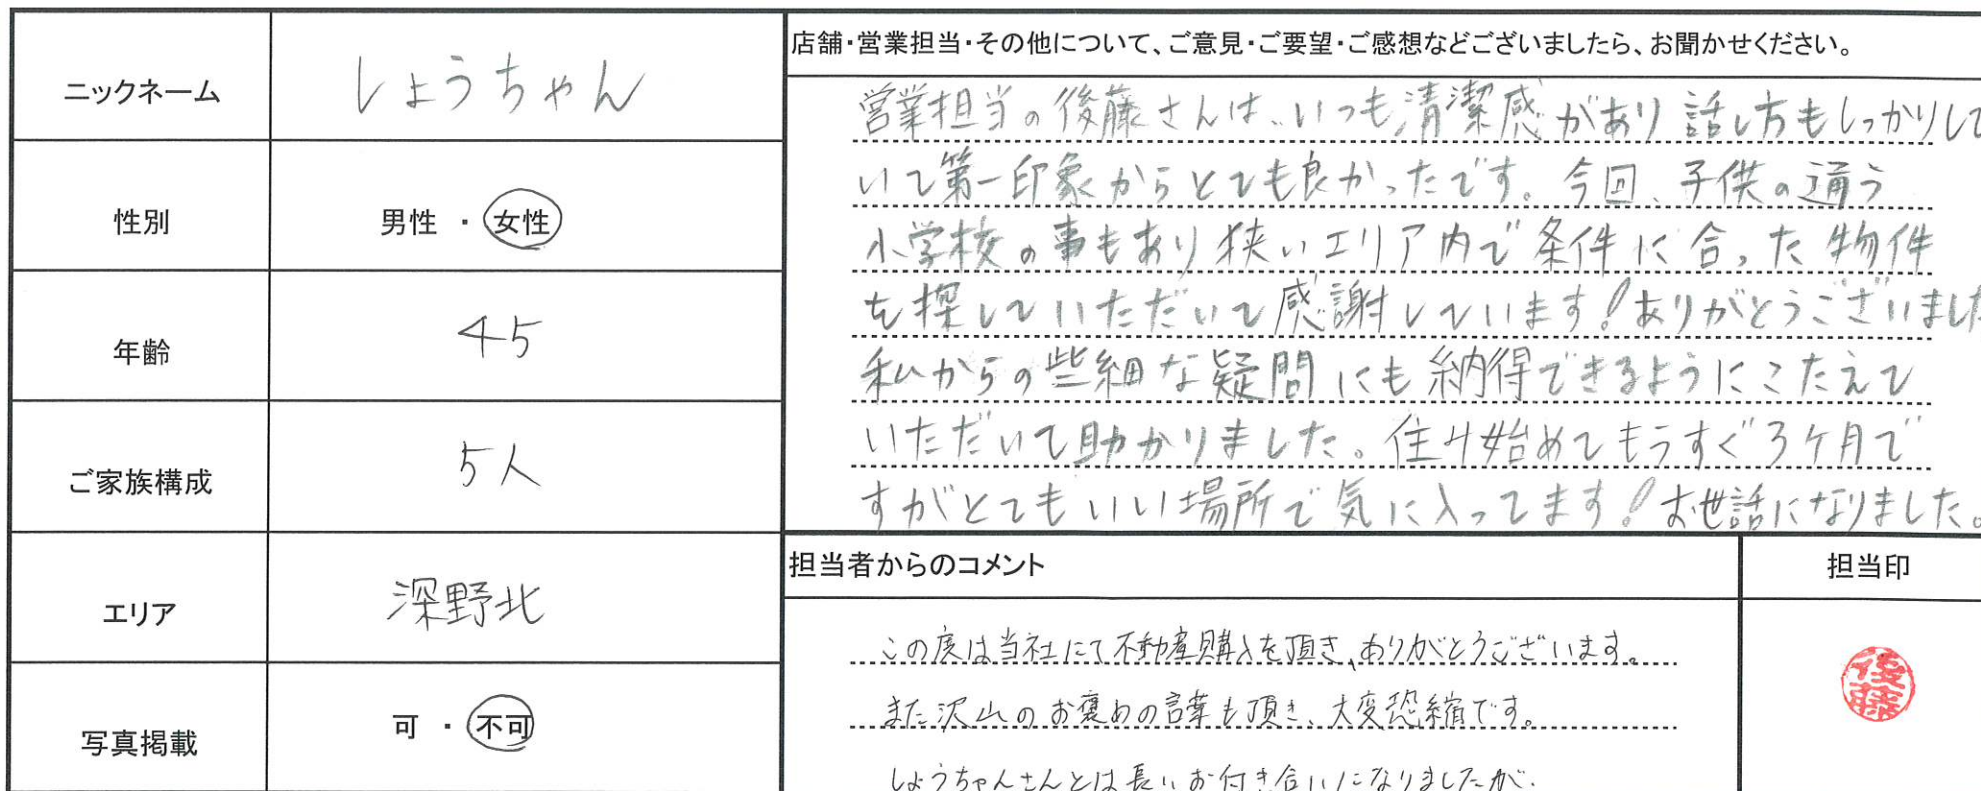 ニックネーム
しょうちゃん
性別
男性 ・ 女性
年齢
45
ご家族構成
5人
エリア
深野北
写真掲載
可 ・ 不可
店舗・営業担当・その他について、ご意見・ご要望・ご感想などございましたら、お聞かせください。
営業担当の後藤さんは、いつも清潔感があり話し方もしっかりして
いて第一印象からとても良かったです。今回、子供の通う
小学校の事もあり狭いエリア内で条件に合った物件
を探していただいて感謝しています!ありがとうございました
私からの些細な疑問にも納得できるようにこたえて
いただいて助かりました。住み始めてもうすぐ3ケ月で
すがとてもいい場所で気に入ってます!お世話になりました。
担当者からのコメント
この度は当社にて不動産購入を頂き、ありがとうございます。
また沢山のお褒めの言葉も頂き、大変恐縮です。
しょうちゃんさんとは長いお付き合いになりましたが、
担当印
後藤